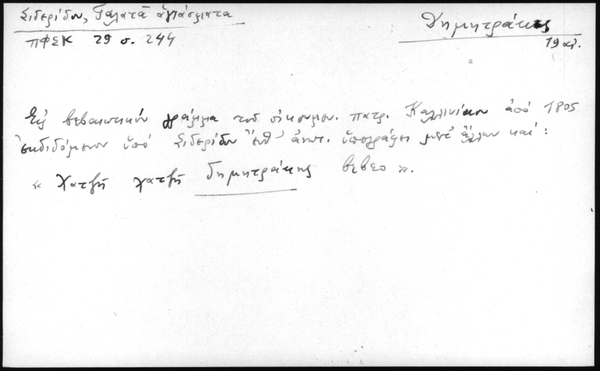 Σιδερίδου, Γαλατᾶ ἁγιάσματα
Δημητράκης
ΠΦΣΚ 29 σ. 244
19 αἰ.
Εἰς βεβαιωτικόν γράμμα τοῦ οἰκουμ. πατρ. Καλλινίκου ἀπό 1805
ἐκδιδόμενον ὑπό Σιδερίδου ἔνθ' ἀνωτ. ὑπογράφει μετ' ἄλλων καί:
« Χατζῆ χατζῆ Δημητράκης βεβεο ».